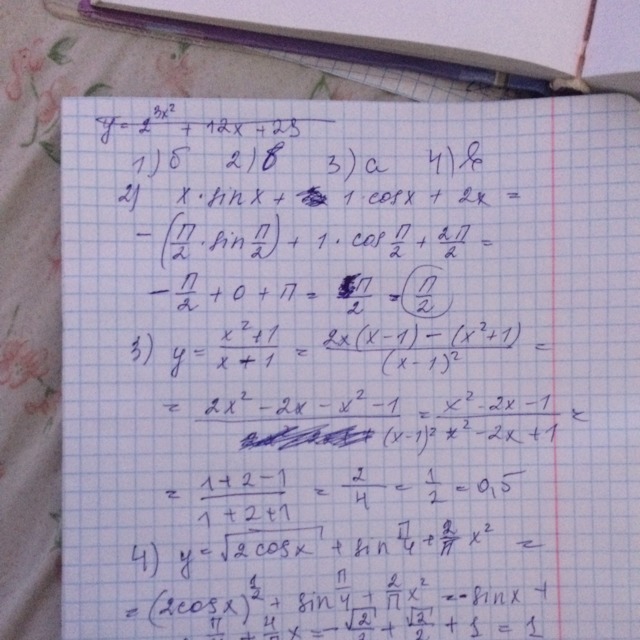 y=2^{3x^2} + 12x + 23
1) б 2) в 3) а 4) в
2) x·sinx + 1·cosx + 2x =
-(П/2·sin П/2) + 1·cos П/2 + 2П/2 =
-П/2 + 0 + П = П/2 = П/2
3) y = (x²+1)/(x-1) = (2x(x-1) - (x²+1))/(x-1)² =
= (2x² - 2x - x² - 1)/(x-1)² = (x² - 2x - 1)/(x² - 2x + 1) =
= (1+2-1)/(1+2+1) = 2/4 = 1/2 = 0,5
4) y = √(2cosx) + sin П/4 + 2/П x² =
= (2cosx)^{1/2} + sin П/4 + 2/П x² - sinx +
П/4 + 4/П x = -√2/2 + √2/2 + 1 = 1